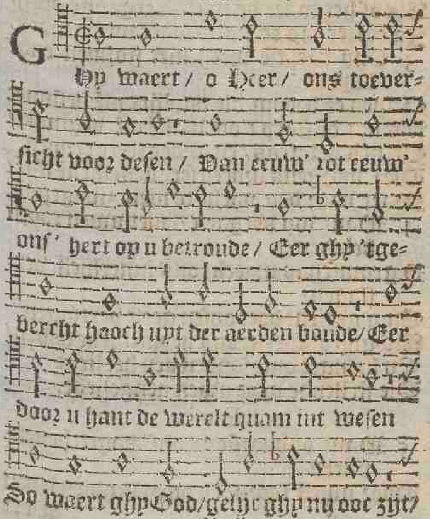 GHy waert / o Heer / ons toever-
sicht voor desen / Van eeuw' tot eeuw'
ons' hert op u betroude / Eer ghy 'tge-
bercht hooch uyt der aerden boude / Eer
door u hant de werelt quam int wesen
So waert ghy God / gelijc ghy nu ooc zijt /